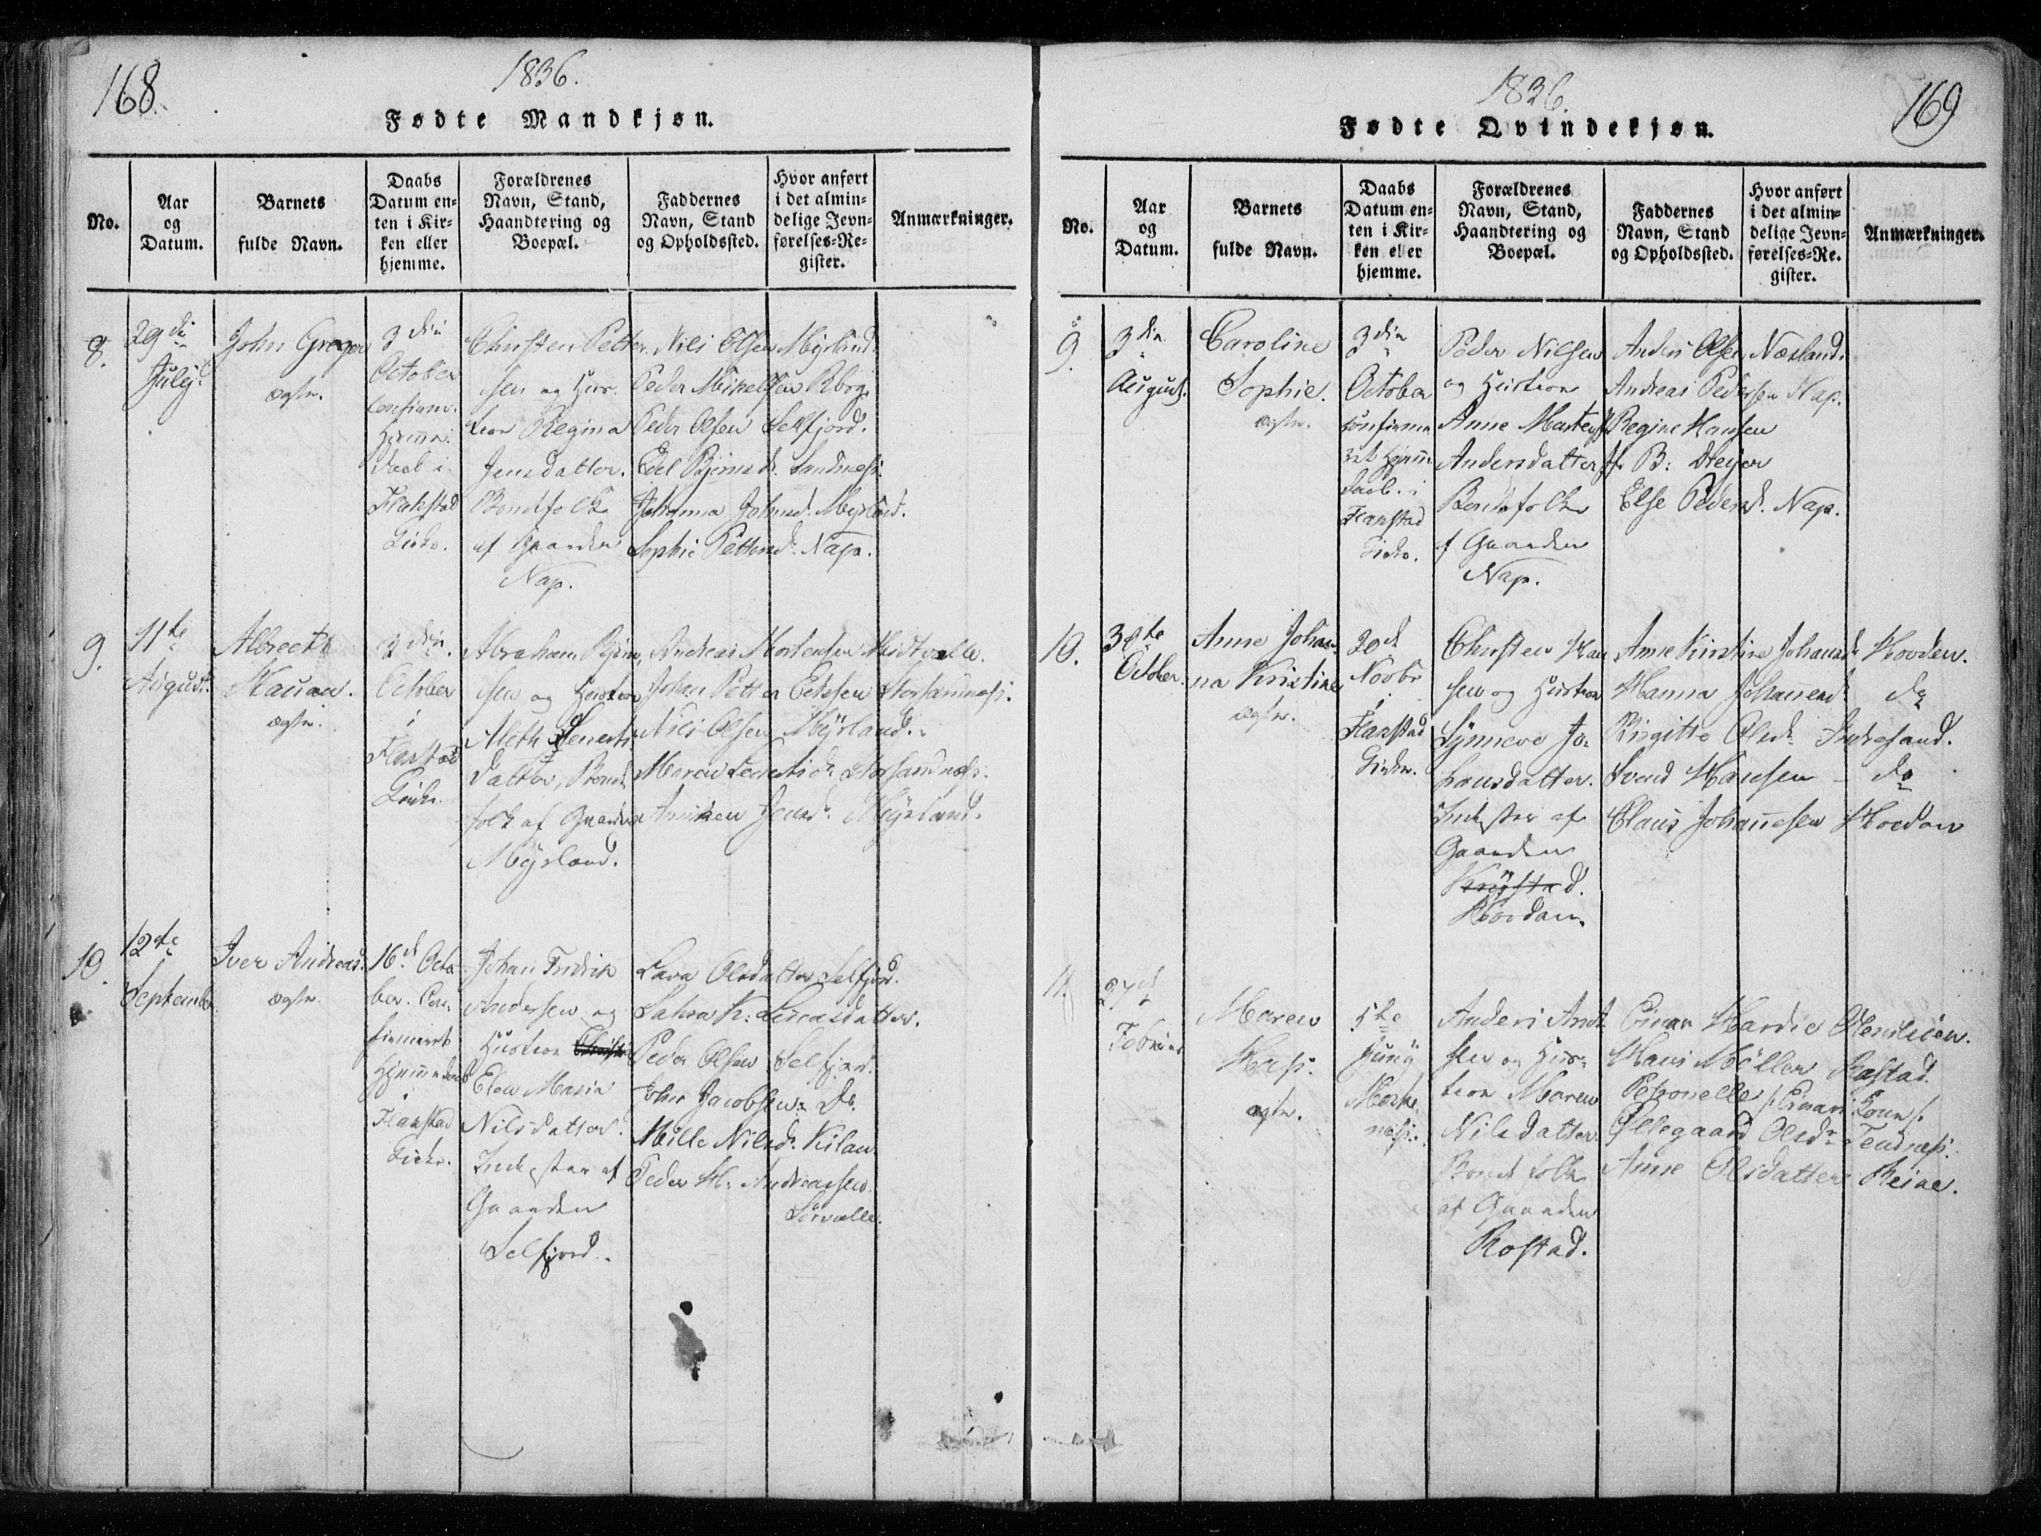 168.
1836.
Fødte Mandkjøn.
No.
Aar
og
Datum.
Barnets
fulde Navn.
Daabs
Datum en-
ten i Kir-
ken eller
hjemme.
Forældrenes
Navn, Stand,
Haandtering og
Boepæl.
Faddernes
Navn, Stand
og Opholdssted.
Hvor anført
i det almin-
delige Jevn-
førelses-Re-
gister.
Anmærkninger.
8.
29de
July
John Greger
ægte.
3die
October
confirm.
Hjemme
Daab i
Flakstad
Kirke.
Christen Petter
sen og Hus
troe Regina
Jensdatter.
Bondfolk
af Gaarden
Nap.
Nils Olsen Myrland.
Peder Mikelsen
Peder Olsen Selfjord.
Edel Biørnsd. Sandnæss.
Johanna Johnsd. Myrland.
Sophie Pettersd. Nap.
9.
11te
August.
Albrecht
ægte.
3die
October
i
Flakstad
Kirke.
Abraham Biørn
sen og Hustroe
Aleth Lenerts
datter, Bond
folk af Gaarden
Myrland.
Andreas Mortensen
Johan Petter Storsandnæss.
Nils Olsen Myrland.
Maren Lenertsd. Storsandnæss.
Anniken Jensd. Myrland.
10.
12te
September
Iver Andreas.
ægte.
16d Octo
ber. Con
firmeret
Hjemmedaab
i
Flakstad
Kirke.
Johan Fredrik
Andersen og
Hustroe
Elen Maria
Nilsdatter.
Inderster af
Gaarden
Selfjord.
Lava Olsdatter Selfjord.
Lucasdatter.
Peder Olsen Selfjord.
John Jacobsen Do.
Mille Nilsd. Kilan
Peder M. Andreassen
Sørvælle.
169
1836.
Fødte Qvindekjøn.
No.
Aar
og
Datum.
Barnets
fulde Navn.
Daabs
Datum en-
ten i Kir-
ken eller
hjemme.
Forældrenes
Navn, Stand,
Haandtering og
Boepæl.
Faddernes
Navn, Stand
og Opholdssted.
Hvor anført
i det almin-
delige Jevn-
førelses-Re-
gister.
Anmærkninger.
9.
3die
August.
Caroline
Sophie.
ægte.
3die
October
confirme
ret Hjemme
daab. i
Flakstad
Kirke.
Peder Nilsen
og Hustroe
Anne
Andersdatter
Bondefolk
af Gaarden
Nap.
Anders Olsen Næsland.
Andreas Pedersen Nap.
Regine Hansen
B: Dreyer
Else Pedersd. Nap.
10.
30te
October
Anne Johan-
na Kristine
ægte.
20d
Novbr
i
Flakstad
Kirke.
Christen Han
sen og Hustroe
Synneve Jo-
hansdatter.
Inderster af
Gaarden
Krystad.
Hovden.
Anne Kirstine Johansd. Hovden.
Hanna Johannesd. do
Birgitte Olsd. Indresand.
Svend Hansen - do
Claus Johannesen Hovden
11.
27d
Februar
Maren
ægte.
5te
Juny
Moske
næss.
Anders And
sen og Hus-
troe Maren
Nilsdatter
Bondefolk
af Gaarden
Rostad.
Einar Hardie
Hans Møller Rostad.
Petronelle
Øllegaard Olsdr. Tendnæss.
Anne Olsdatter Reine.